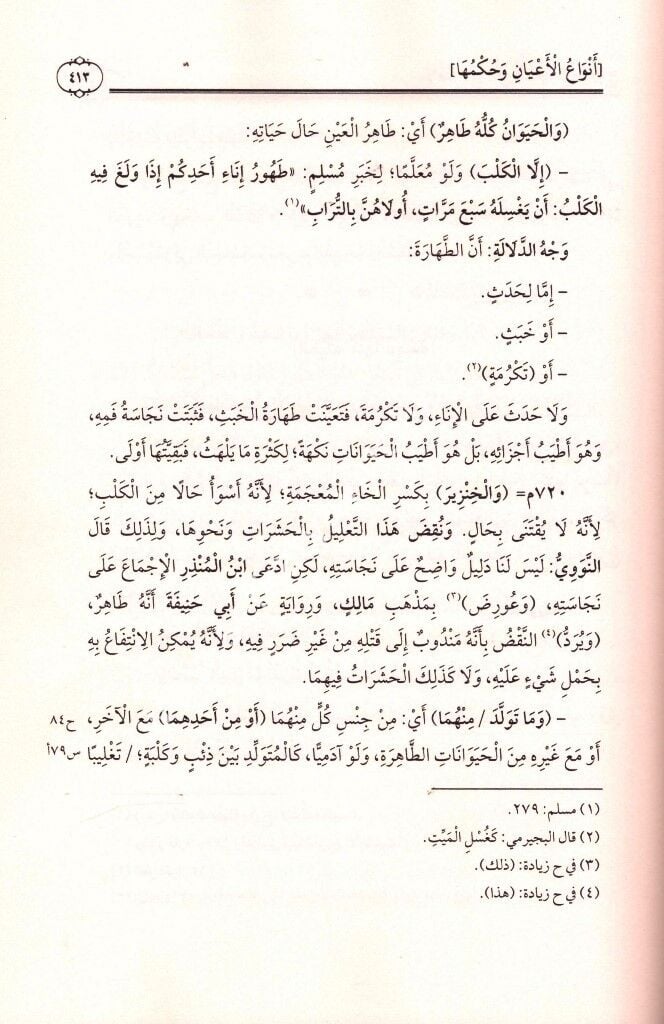 [أَنْوَاعُ الْأَعْيَانِ وَحُكْمُهَا]
٤١٣
(وَالْحَيَوَانُ كُلُّهُ طَاهِرٌ) أَيْ: طَاهِرُ الْعَيْنِ حَالَ حَيَاتِهِ:
– (إِلَّا الْكَلْبَ) وَلَوْ مُعَلَّمًا؛ لِخَبَرِ مُسْلِمٍ: «طَهُورُ إِنَاءِ أَحَدِكُمْ إِذَا وَلَغَ فِيهِ
الْكَلْبُ: أَنْ يَغْسِلَهُ سَبْعَ مَرَّاتٍ، أُولَاهُنَّ بِالتُّرَابِ»(١).
وَجْهُ الدَّلَالَةِ: أَنَّ الطَّهَارَةَ:
– إِمَّا لِحَدَثٍ.
– أَوْ خَبَثٍ.
– أَوْ (تَكْرُمَةٍ)(٢).
وَلَا حَدَثَ عَلَى الْإِنَاءِ، وَلَا تَكْرُمَةَ، فَتَعَيَّنَتْ طَهَارَةُ الْخَبَثِ، فَثَبَتَتْ نَجَاسَةُ فَمِهِ،
وَهُوَ أَطْيَبُ أَجْزَائِهِ، بَلْ هُوَ أَطْيَبُ الْحَيَوَانَاتِ نَكْهَةً؛ لِكَثْرَةِ مَا يَلْهَثُ، فَبَقِيَّتُهَا أَوْلَى.
٧٢٠م= (وَالْخِنْزِيرَ) بِكَسْرِ الْخَاءِ الْمُعْجَمَةِ؛ لِأَنَّهُ أَسْوَأُ حَالًا مِنَ الْكَلْبِ؛
لِأَنَّهُ لَا يُقْتَنَى بِحَالٍ. وَنُقِضَ هَذَا التَّعْلِيلُ بِالْحَشَرَاتِ وَنَحْوِهَا، وَلِذَلِكَ قَالَ
النَّوَوِيُّ: لَيْسَ لَنَا دَلِيلٌ وَاضِحٌ عَلَى نَجَاسَتِهِ، لَكِنِ ادَّعَى ابْنُ الْمُنْذِرِ الْإِجْمَاعَ عَلَى
نَجَاسَتِهِ، (وَعُورِضَ)(٣) بِمَذْهَبِ مَالِكٍ، وَرِوَايَةٍ عَنْ أَبِي حَنِيفَةَ أَنَّهُ طَاهِرٌ،
(وَيُرَدُّ)(٤) النَّقْضُ بِأَنَّهُ مَنْدُوبٌ إِلَى قَتْلِهِ مِنْ غَيْرِ ضَرَرٍ فِيهِ، وَلِأَنَّهُ يُمْكِنُ الِانْتِفَاعُ بِهِ
بِحَمْلِ شَيْءٍ عَلَيْهِ، وَلَا كَذَلِكَ الْحَشَرَاتُ فِيهِمَا.
– (وَمَا تَوَلَّدَ / مِنْهُمَا) أَيْ: مِنْ جِنْسِ كُلٍّ مِنْهُمَا (أَوْ مِنْ أَحَدِهِمَا) مَعَ الْآخَرِ، ح٨٤
أَوْ مَعَ غَيْرِهِ مِنَ الْحَيَوَانَاتِ الطَّاهِرَةِ، وَلَوْ آدَمِيًّا، كَالْمُتَوَلِّدِ بَيْنَ ذِئْبٍ وَكَلْبَةٍ؛ / تَغْلِيبًا س٧٩أ
(١) مسلم: ٢٧٩.
(٢) قال البجيرمي: كَغُسْلِ الْمَيِّتِ.
(٣) في ح زيادة: (ذلك).
(٤) في ح زيادة: (هذا).